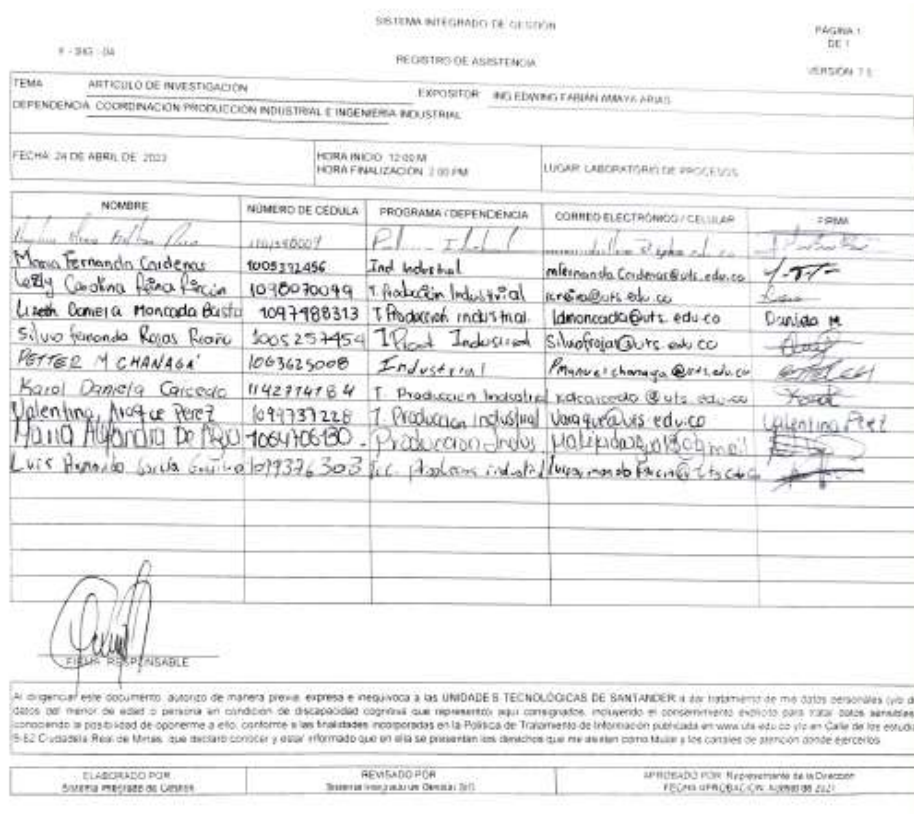 SISTEMA INTEGRADO DE GESTIÓN
PÁGINA 1
DE 1
REGISTRO DE ASISTENCIA
TEMA ARTICULO DE INVESTIGACIÓN EXPOSITOR ING EDWING FABIÁN AMAYA ARIAS
DEPENDENCIA COORDINACIÓN PRODUCCIÓN INDUSTRIAL E INGENIERÍA INDUSTRIAL
FECHA: 24 DE ABRIL DE 2023
HORA INICIO 12:00 M
HORA FINALIZACIÓN 2:00 PM
LUGAR LABORATORIO DE PROCESOS
NOMBRE NÚMERO DE CEDULA PROGRAMA / DEPENDENCIA CORREO ELECTRÓNICO / CELULAR FIRMA
Maria Fernanda Cardenas 1005372456 Ind Industrial
Leidy Carolina Reina Rincón 1098070099 T. Producción Industrial
Liseth Daniela Moncada Basto 1097988313 T Producción industrial ldmoncada@uts.edu.co Daniela M
Silvio Fernando Rojas 1005257454 Industrial Silvofrojas@uts.edu.co
PETTER M CHANAGÁ 1063625008 Industrial
Karol Daniela Caicedo 1142714184 T. Produccion Industrial kdcaicedo@uts.edu.co
Valentina Araque Perez 1099737228 T. Produccion Industrial Varaque@uts.edu.co Valentina Perez
Maria Alejandra De 1064706130 Produccion Indus
Luis Armando García 1099376303 Tec. Produccion industrial
FIRMA RESPONSABLE
Al diligenciar este documento, autorizo de manera previa, expresa e inequívoca a las UNIDADES TECNOLÓGICAS DE SANTANDER a dar tratamiento de mis datos personales (y/o
datos del menor de edad o persona en condición de discapacidad cognitiva que represento) aquí consignados, incluyendo el consentimiento explícito para tratar datos sensibles
conociendo la posibilidad de oponerme a ello, conforme a las finalidades incorporadas en la Política de Tratamiento de Información publicada en www.uts.edu.co y/o en Calle de los estudi
9-82 Ciudadela Real de Minas, que declaro conocer y estar informado que en ella se presentan los derechos que me asisten como titular y los canales de atención donde ejercerlos
ELABORADO POR
Sistema Integrado de Gestión
REVISADO POR
APROBADO POR: Representante de la Dirección
FECHA APROBACIÓN: Agosto de 2021